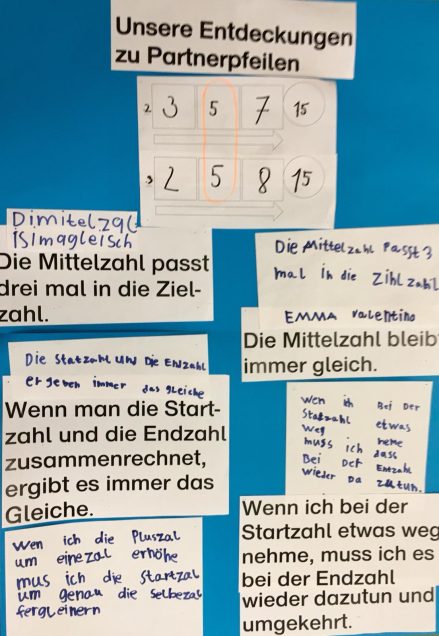 Unsere Entdeckungen
zu Partnerpfeilen
2 3 5 7 15
3 2 5 8 15
Dimitelzal
isImagleisch
Die Mittelzahl passt
drei mal in die Ziel-
zahl.
Die Mittelzahl Passt 3
mal in die Zihlzahl
EMMA Valentino
Die Mittelzahl bleib
immer gleich.
Die Statzahl und Die Endzahl
ergeben immer das gleiche
Wenn man die Start-
zahl und die Endzahl
zusammenrechnet,
ergibt es immer das
Gleiche.
wen ich Bei Der
Statzahl etwas
weg neme
muss ich dass
Bei Der Entzahl
wieder Da zutun.
Wenn ich bei der
Startzahl etwas weg
nehme, muss ich es
bei der Endzahl
wieder dazutun und
umgekehrt.
Wen ich die Pluszal
um einezal erhöhe
mus ich die Startzal
um genau die Selbezal
fergleinern